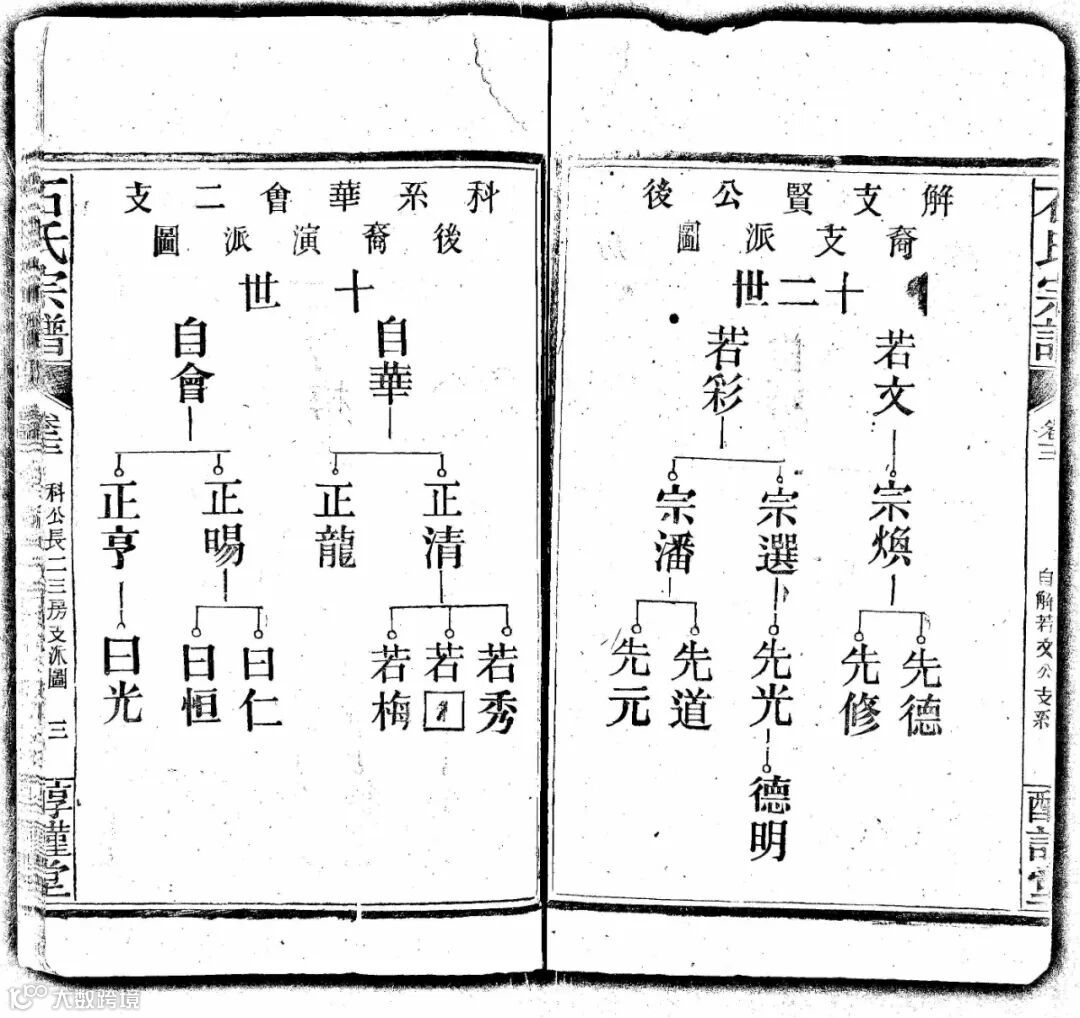 卷三
自解若文公支系
解支賢公後
裔支派圖
十二世
若文
若彩
宗煥
宗選
宗潘
先德
先修
先光
先道
先元
德明
科系華會二支
後裔演派圖
十世
自華
自會
正清
正龍
正暘
正亨
若秀
若
若梅
曰仁
曰恒
曰光
石氏宗譜
卷三
科公長二三房支派圖
三
醇謹堂
大数跨境